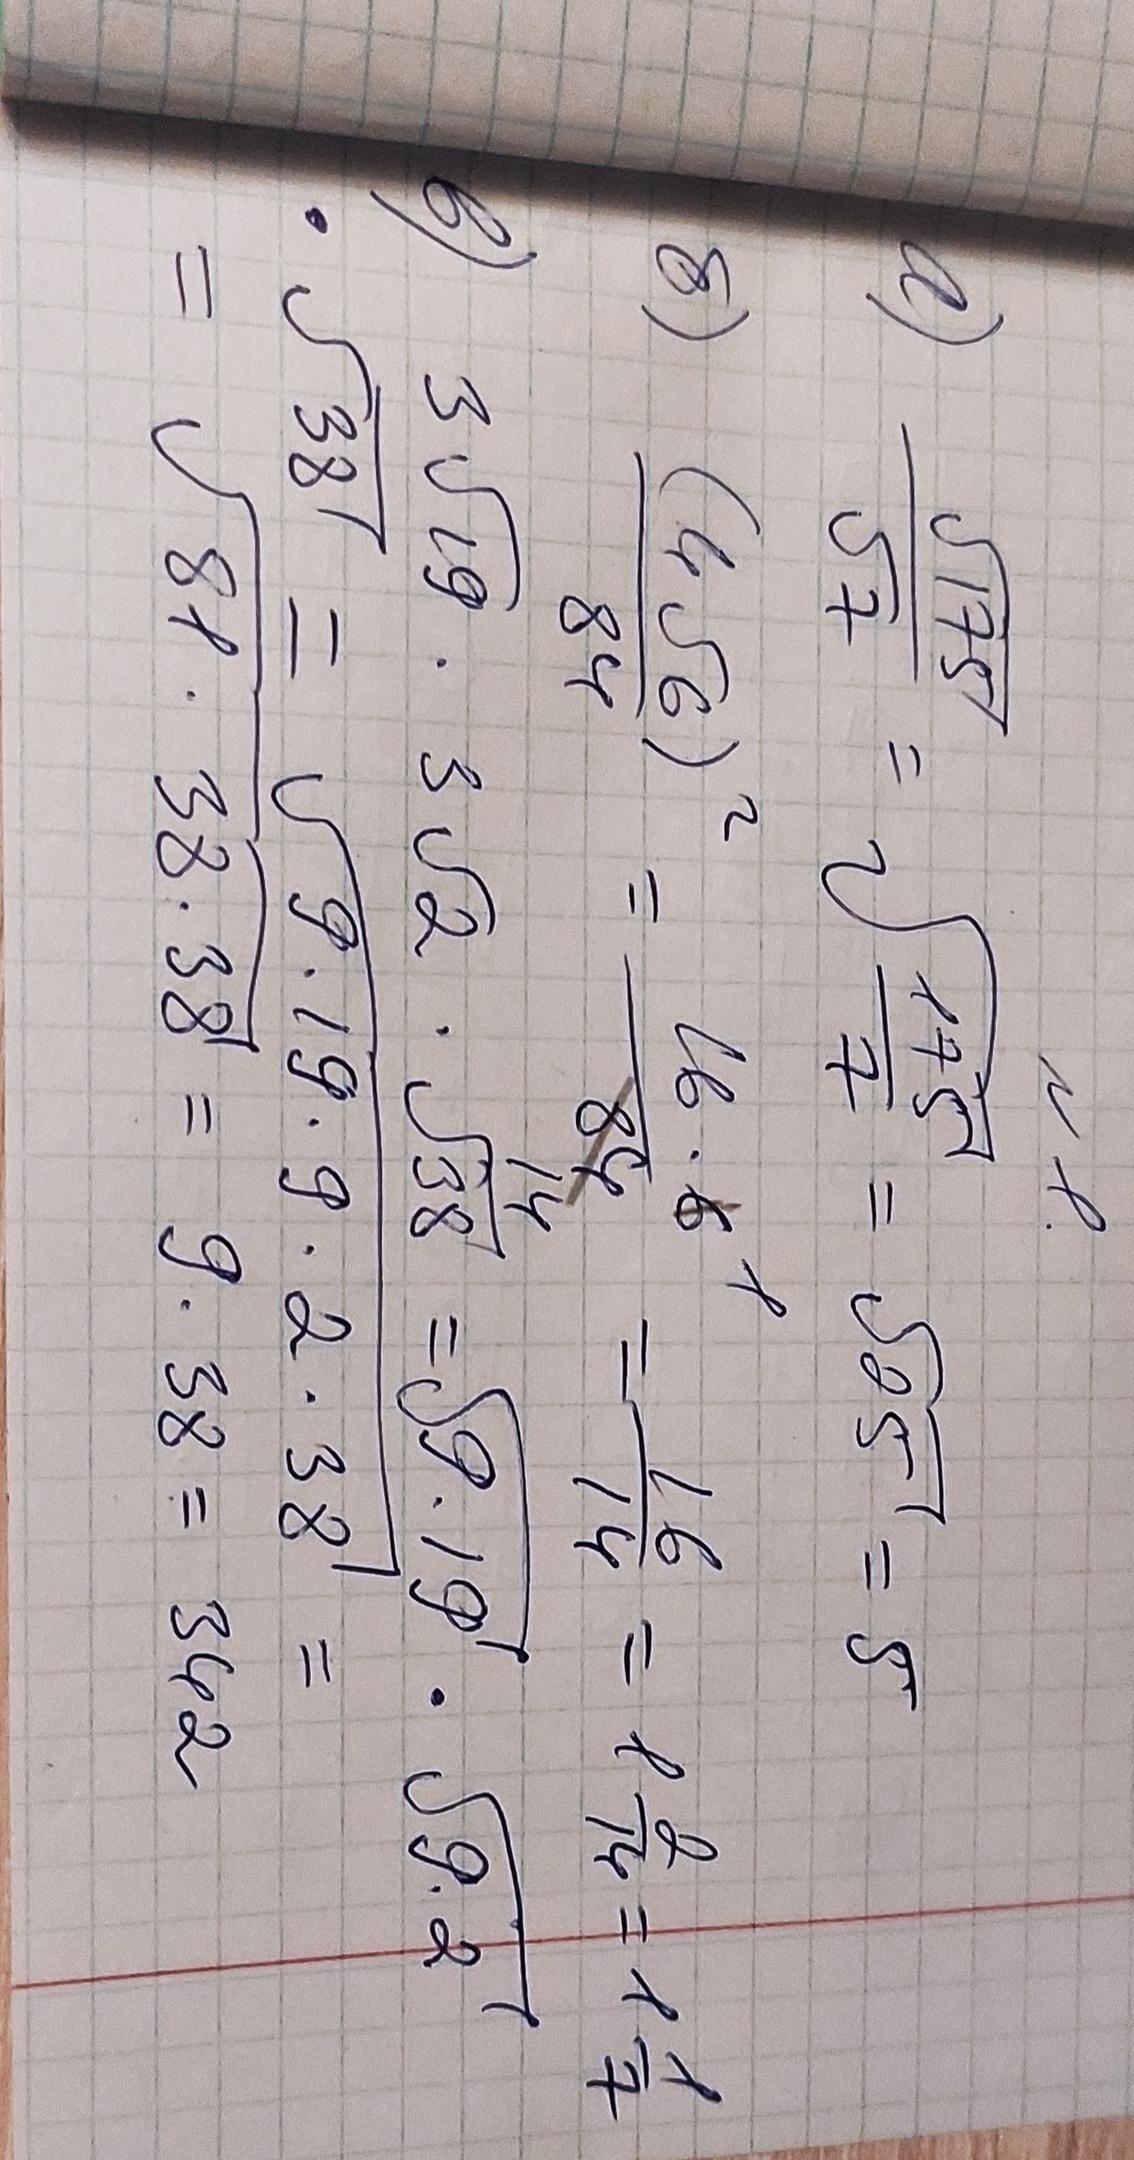 №1.
а) √175/√7 = √(175/7) = √25 = 5
б) (4√6)²/84 = 16·6/84 = 16/14 = 1 2/14 = 1 1/7
1
14
в) 3√19 · 3√2 · √38 = √9·19 · √9·2
· √38 = √9·19·9·2·38 =
= √81·38·38 = 9·38 = 342